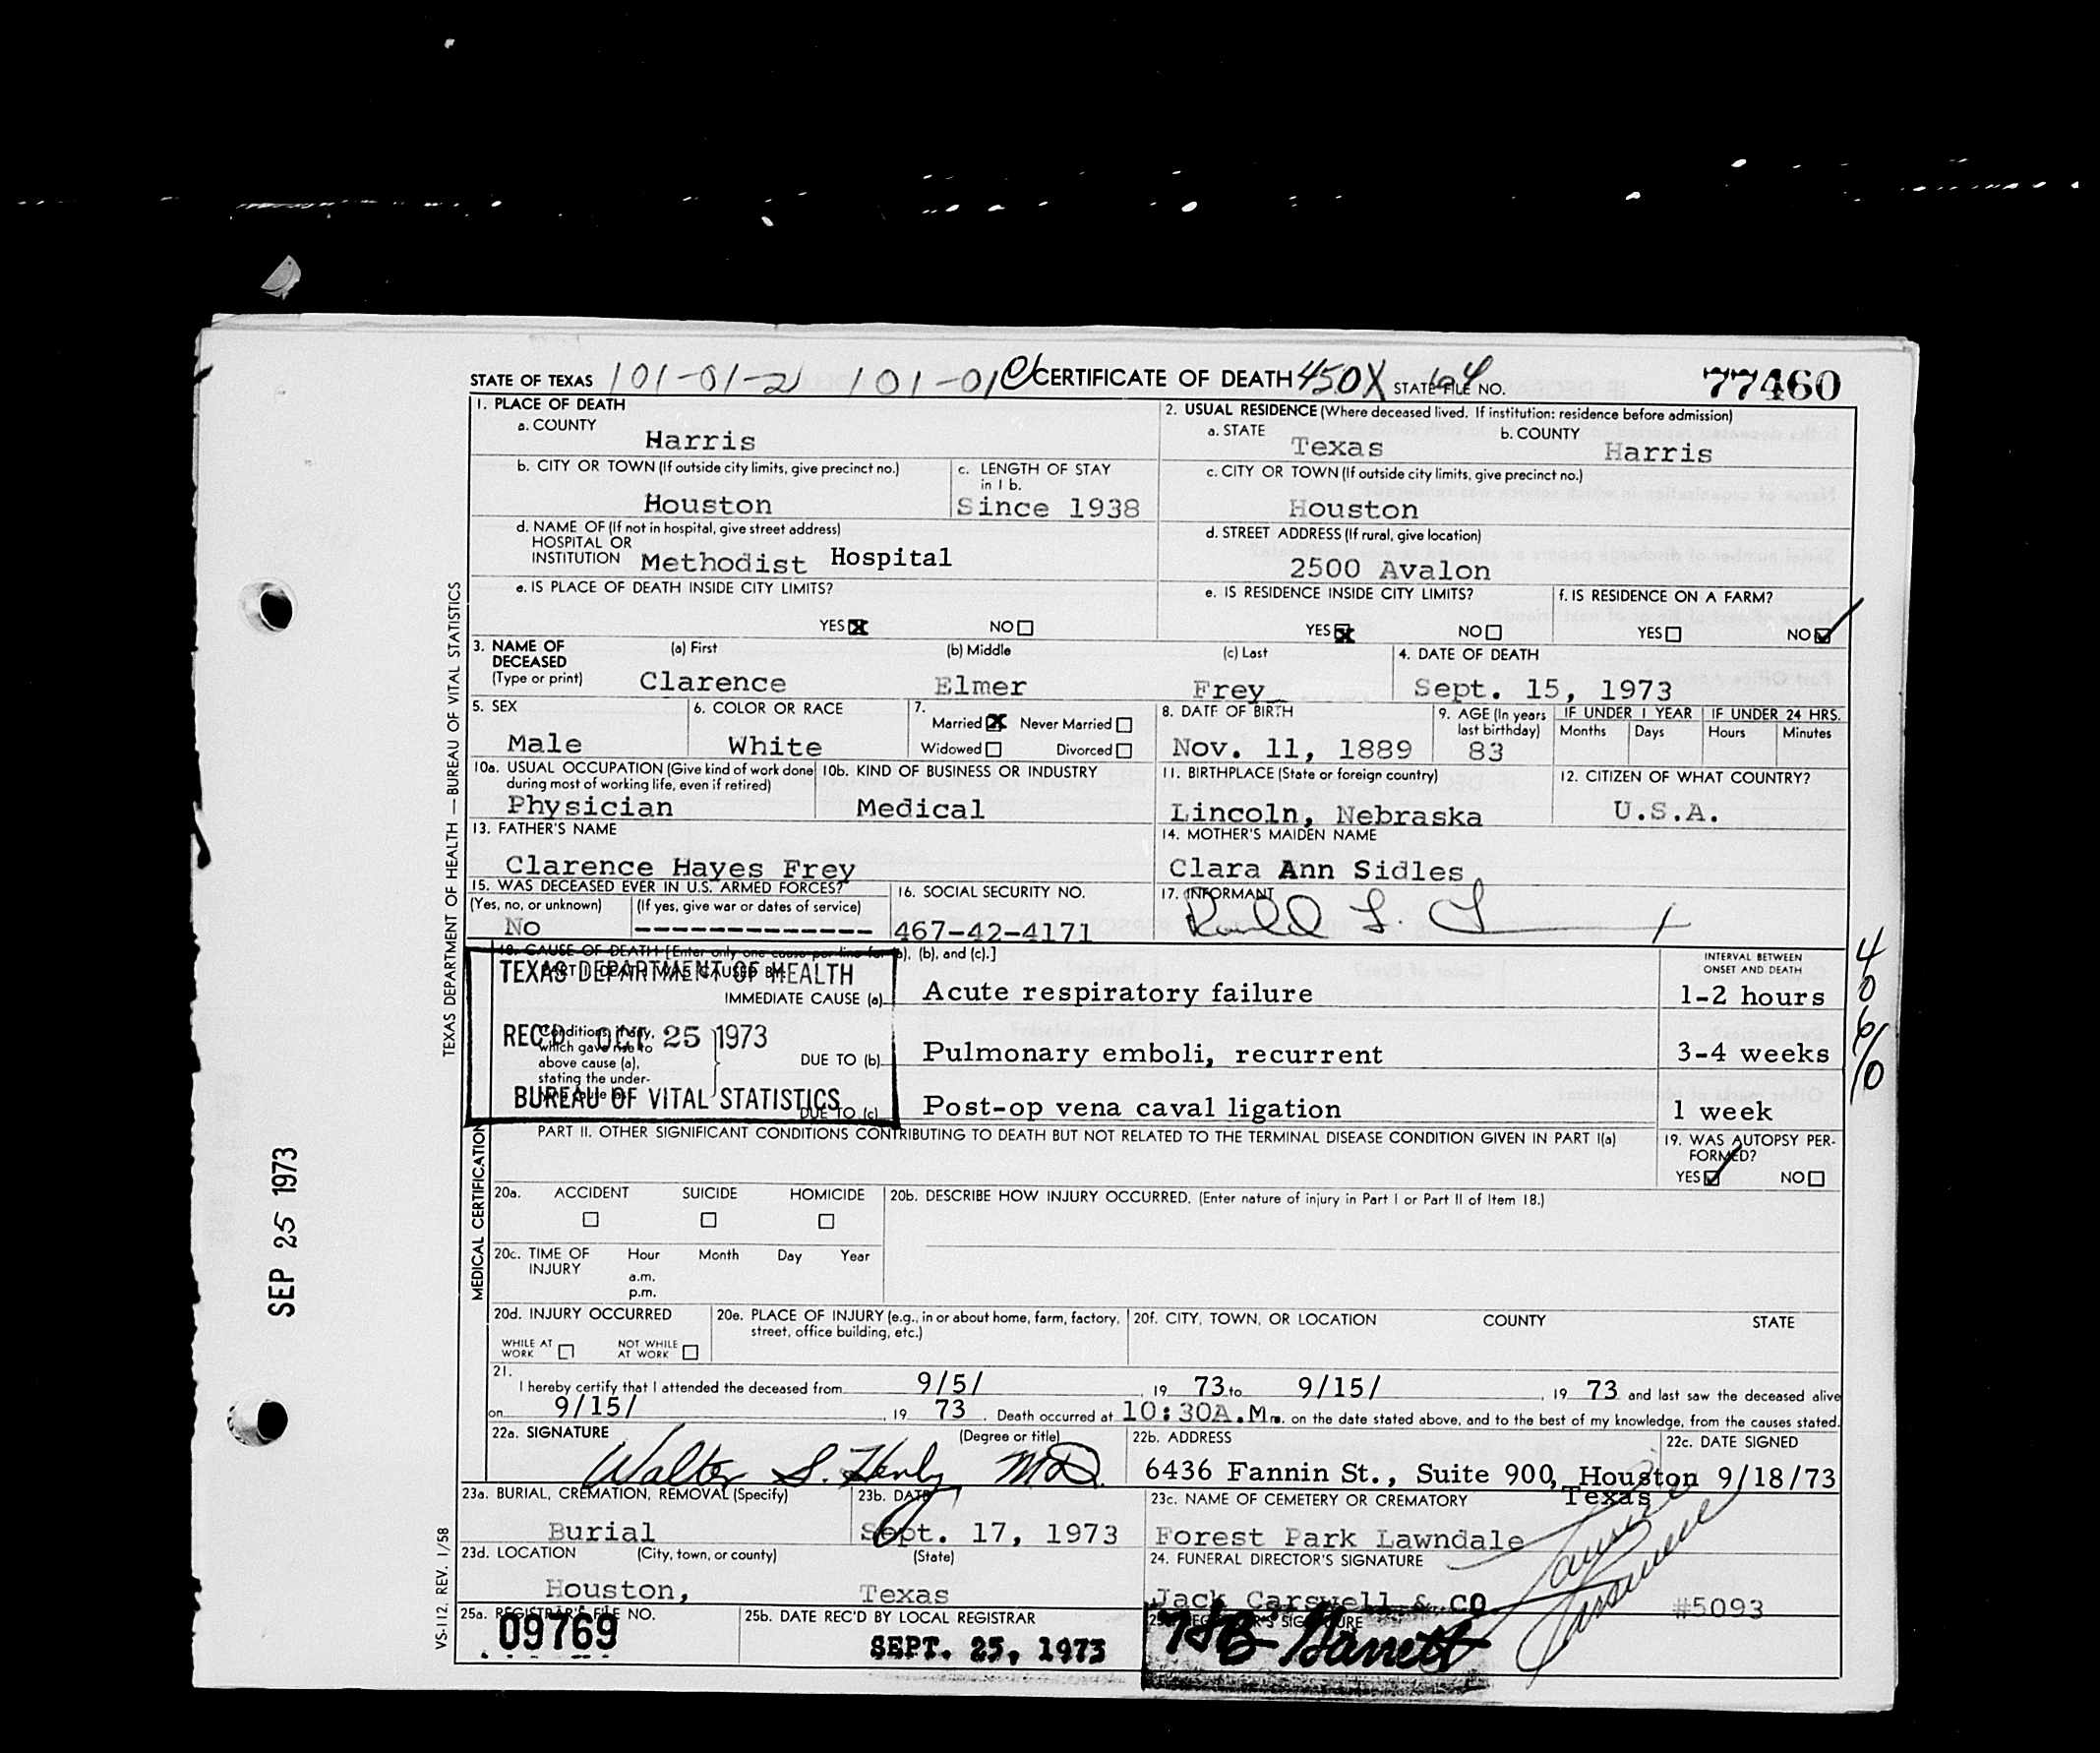 STATE OF TEXAS 101-01-2 101-01 CERTIFICATE OF DEATH 450X STATE FILE NO. 77460
1. PLACE OF DEATH
a. COUNTY
Harris
b. CITY OR TOWN (If outside city limits, give precinct no.)
Houston
c. LENGTH OF STAY in 1 b.
Since 1938
d. NAME OF (If not in hospital, give street address)
HOSPITAL OR
INSTITUTION Methodist Hospital
e. IS PLACE OF DEATH INSIDE CITY LIMITS?
YES X NO
2. USUAL RESIDENCE (Where deceased lived. If institution: residence before admission)
a. STATE Texas b. COUNTY Harris
c. CITY OR TOWN (If outside city limits, give precinct no.)
Houston
d. STREET ADDRESS (If rural, give location)
2500 Avalon
e. IS RESIDENCE INSIDE CITY LIMITS?
YES X NO
f. IS RESIDENCE ON A FARM?
YES NO
3. NAME OF DECEASED (Type or print)
(a) First (b) Middle (c) Last
Clarence Elmer Frey
4. DATE OF DEATH
Sept. 15, 1973
5. SEX
Male
6. COLOR OR RACE
White
7.
Married X Never Married
Widowed Divorced
8. DATE OF BIRTH
Nov. 11, 1889
9. AGE (In years last birthday)
83
IF UNDER 1 YEAR IF UNDER 24 HRS.
Months Days Hours Minutes
10a. USUAL OCCUPATION (Give kind of work done during most of working life, even if retired)
Physician
10b. KIND OF BUSINESS OR INDUSTRY
Medical
11. BIRTHPLACE (State or foreign country)
Lincoln, Nebraska
12. CITIZEN OF WHAT COUNTRY?
U.S.A.
13. FATHER'S NAME
Clarence Hayes Frey
14. MOTHER'S MAIDEN NAME
Clara Ann Sidles
15. WAS DECEASED EVER IN U.S. ARMED FORCES?
(Yes, no, or unknown) (If yes, give war or dates of service)
No --------------
16. SOCIAL SECURITY NO.
467-42-4171
17. INFORMANT
18. CAUSE OF DEATH [Enter only one cause per line for (a), (b), and (c).]
PART I. DEATH WAS CAUSED BY:
INTERVAL BETWEEN ONSET AND DEATH
IMMEDIATE CAUSE (a) Acute respiratory failure 1-2 hours
Conditions, if any,
which gave rise to
above cause (a),
stating the under-
DUE TO (b) Pulmonary emboli, recurrent 3-4 weeks
DUE TO (c) Post-op vena caval ligation 1 week
TEXAS DEPARTMENT OF HEALTH
REC'D OCT 25 1973
BUREAU OF VITAL STATISTICS
PART II. OTHER SIGNIFICANT CONDITIONS CONTRIBUTING TO DEATH BUT NOT RELATED TO THE TERMINAL DISEASE CONDITION GIVEN IN PART I(a)
19. WAS AUTOPSY PERFORMED?
YES NO
20a. ACCIDENT SUICIDE HOMICIDE
20b. DESCRIBE HOW INJURY OCCURRED. (Enter nature of injury in Part I or Part II of Item 18.)
20c. TIME OF INJURY Hour Month Day Year
a.m.
p.m.
20d. INJURY OCCURRED
WHILE AT WORK NOT WHILE AT WORK
20e. PLACE OF INJURY (e.g., in or about home, farm, factory, street, office building, etc.)
20f. CITY, TOWN, OR LOCATION COUNTY STATE
21.
I hereby certify that I attended the deceased from 9/5/, 19 73 to 9/15/, 19 73 and last saw the deceased alive
on 9/15/, 19 73. Death occurred at 10:30A.M m. on the date stated above, and to the best of my knowledge, from the causes stated.
22a. SIGNATURE (Degree or title)
Walter S. Henly MD.
22b. ADDRESS
6436 Fannin St., Suite 900, Houston
Texas
22c. DATE SIGNED
9/18/73
23a. BURIAL, CREMATION, REMOVAL (Specify)
Burial
23b. DATE
Sept. 17, 1973
23c. NAME OF CEMETERY OR CREMATORY
Forest Park Lawndale
23d. LOCATION (City, town, or county) (State)
Houston, Texas
24. FUNERAL DIRECTOR'S SIGNATURE
Jack Carswell & CO #5093
25a. REGISTRAR'S FILE NO.
09769
25b. DATE REC'D BY LOCAL REGISTRAR
SEPT. 25, 1973
25c. REGISTRAR'S SIGNATURE
TEXAS DEPARTMENT OF HEALTH — BUREAU OF VITAL STATISTICS
MEDICAL CERTIFICATION
VS-112, REV. 1/58
SEP 25 1973